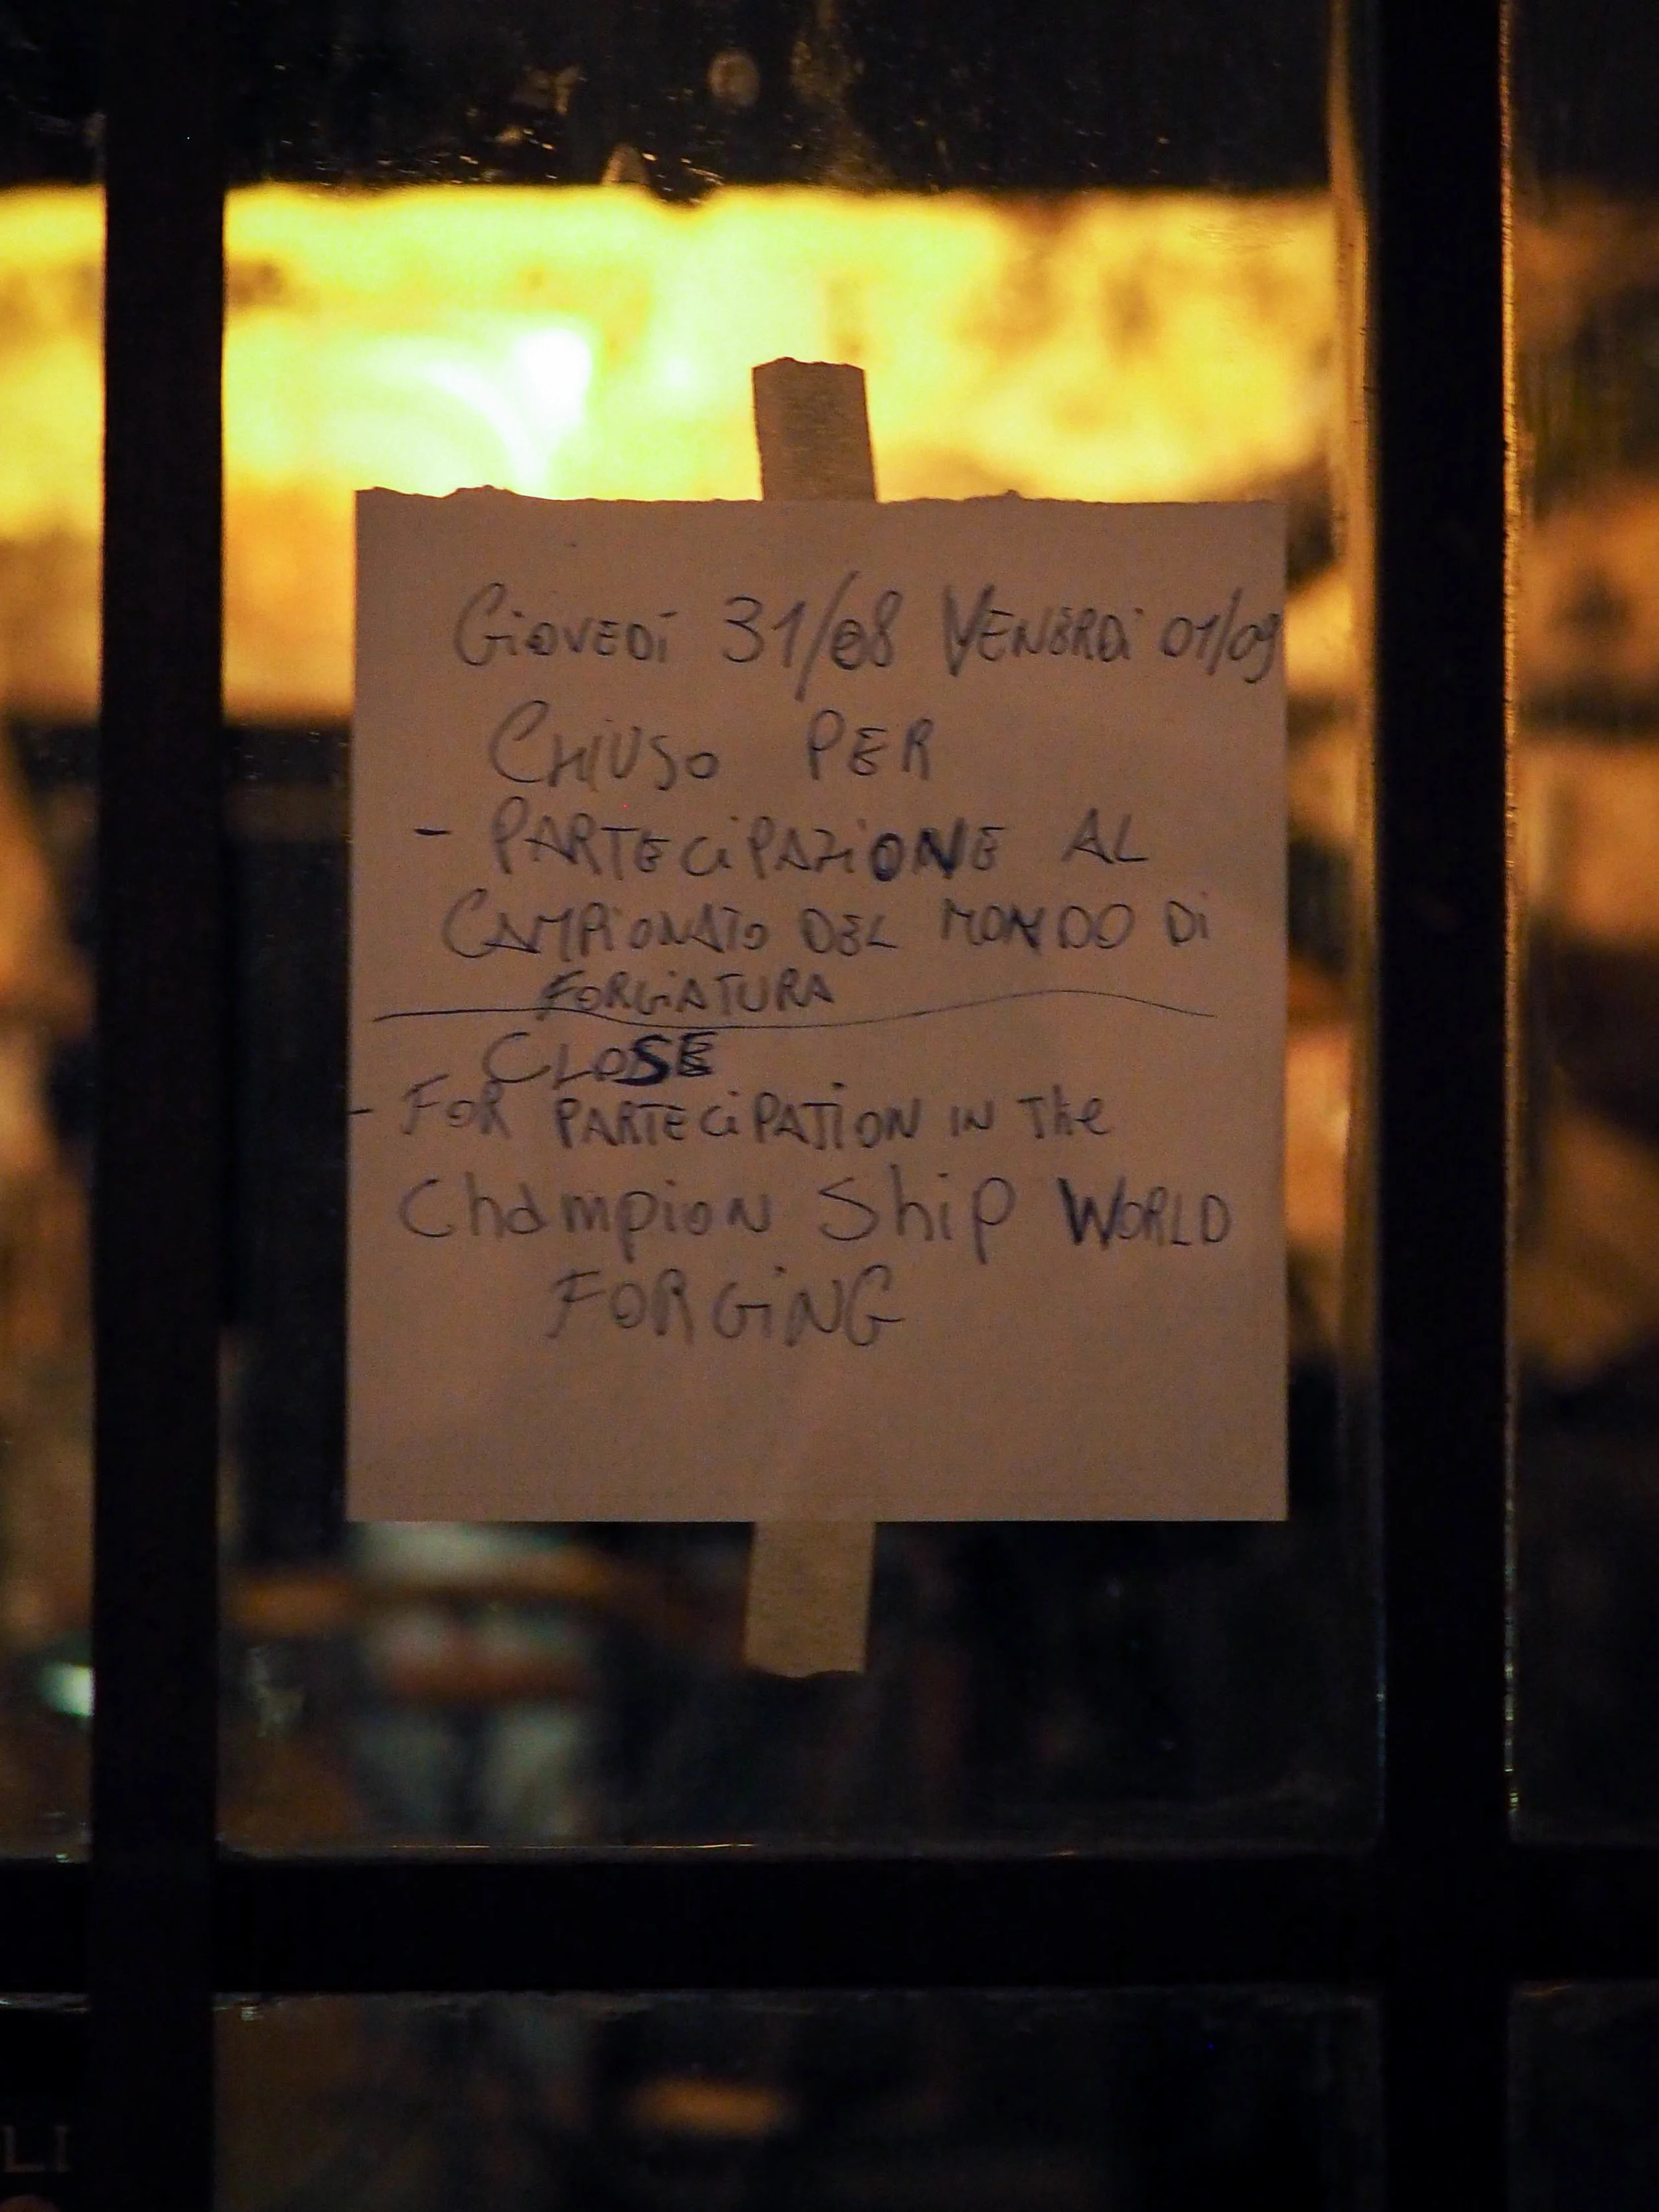 Giovedì 31/08 Venerdì 01/09
CHIUSO PER
- PARTECiPAZiONE AL
CAMPiONATO DEL MONDO Di
FORGiATURA
CLOSE
- FOR PARTECiPATiON IN The
Champion Ship WORLD
FORGiNG
LI